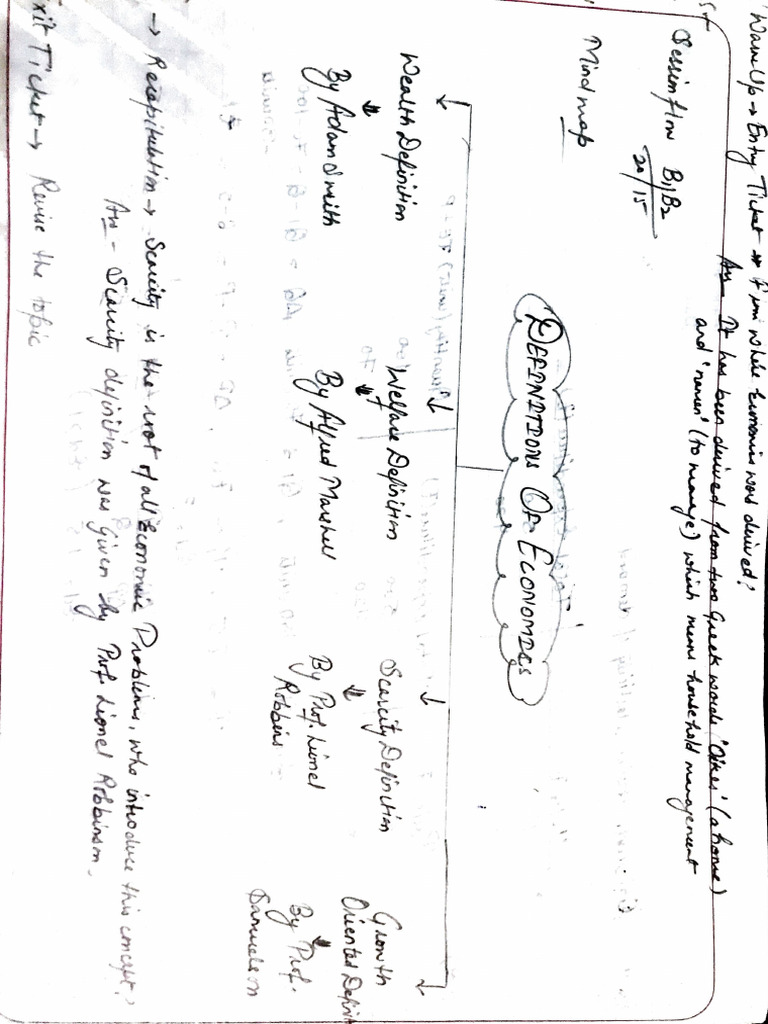 Warm Up → Entry Ticket → From while Economics word derived?
Ans It has been derived from two Greek words 'Oikos' (a home)
and 'nemein' (to manage) which means household management
Session flow B1/B2
20/15
Mind map
DEFINITIONS OF ECONOMICS
Wealth Definition
By Adam Smith
Welfare Definition
By Alfred Marshell
Scarcity Definition
By Prof. Lionel
Robbins
Growth
Oriented Definit
By Prof.
Samuelson
→ Recapitulation → Scarcity is the root of all Economic Problems, who introduce this concept?
Ans - Scarcity definition was given by Prof. Lionel Robbinson.
xit Ticket → Revise the topic